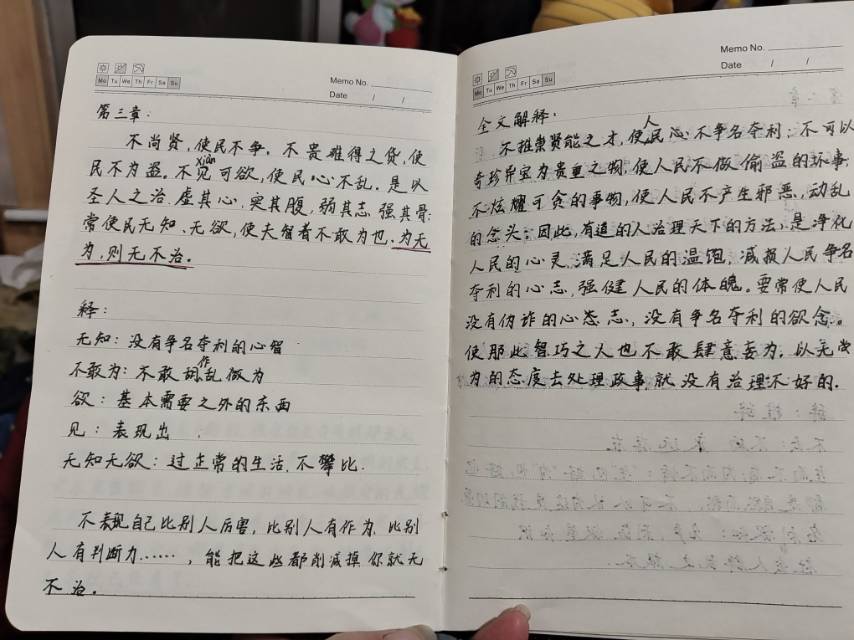 Mo Tu We Th Fr Sa Su
Memo No.
Date / /
第三章:
不尚贤,使民不争。不贵难得之货,使
xiàn
民不为盗。不见可欲,使民心不乱。是以
圣人之治.虚其心,实其腹,弱其志.强其骨;
常使民无知、无欲,使夫智者不敢为也.为无
为,则无不治。
释:
无知:没有争名夺利的心智
作
不敢为:不敢胡乱做为
欲:基本需要之外的东西
见:表现出
无知无欲:过正常的生活.不攀比.
不表现自己比别人厉害,比别人有作为.比别
人有判断力……,能把这些都削减掉你就无
不治。
Mo Tu We Th Fr Sa Su
Memo No.
Date / /
全文解释.
人
不推崇贤能之才,使民心不争名夺利;不可以
奇珍异宝为贵重之物,使人民不做偷盗的坏事;
不炫耀可贪的事物,使人民不产生邪恶,动乱
的念头;因此,有道的人治理天下的方法,是净化
人民的心灵,满足人民的温饱,减损人民争名
夺利的心志,强健人民的体魄。要常使人民
没有伪诈的心态志,没有争名夺利的欲念。
使那些智巧之人也不敢肆意妄为.以无为
为的态度去处理政事,就没有治理不好的.